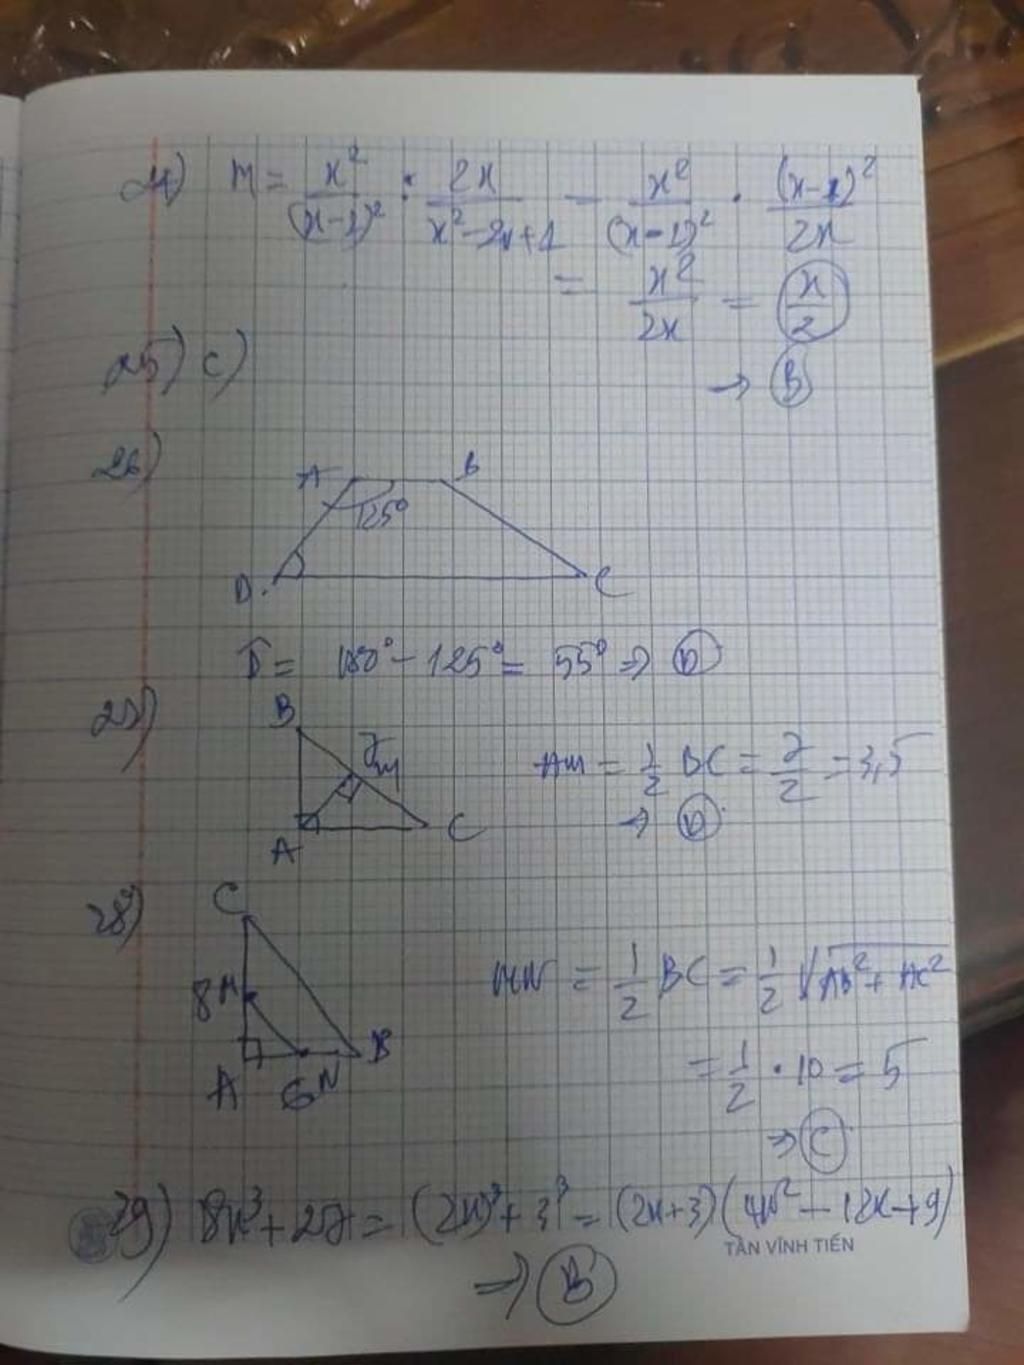 24) M = x²/(x-1)² : 2x/(x²-2x+1) = x²/(x-1)² . (x-1)²/2x
= x²/2x = x/2
25) C) → B
26)
A B
125°
D C
D̂ = 180° - 125° = 55° ⇒ D
27)
B
7 M
A C
AM = 1/2 BC = 7/2 = 3,5
→ D
28)
C
8 M
A 6 N B
MN = 1/2 BC = 1/2 √AB² + AC²
= 1/2 . 10 = 5
⇒ C
29) 8x³ + 27 = (2x)³ + 3³ = (2x+3)(4x² - 12x + 9)
TÂN VĨNH TIẾN
⇒ B